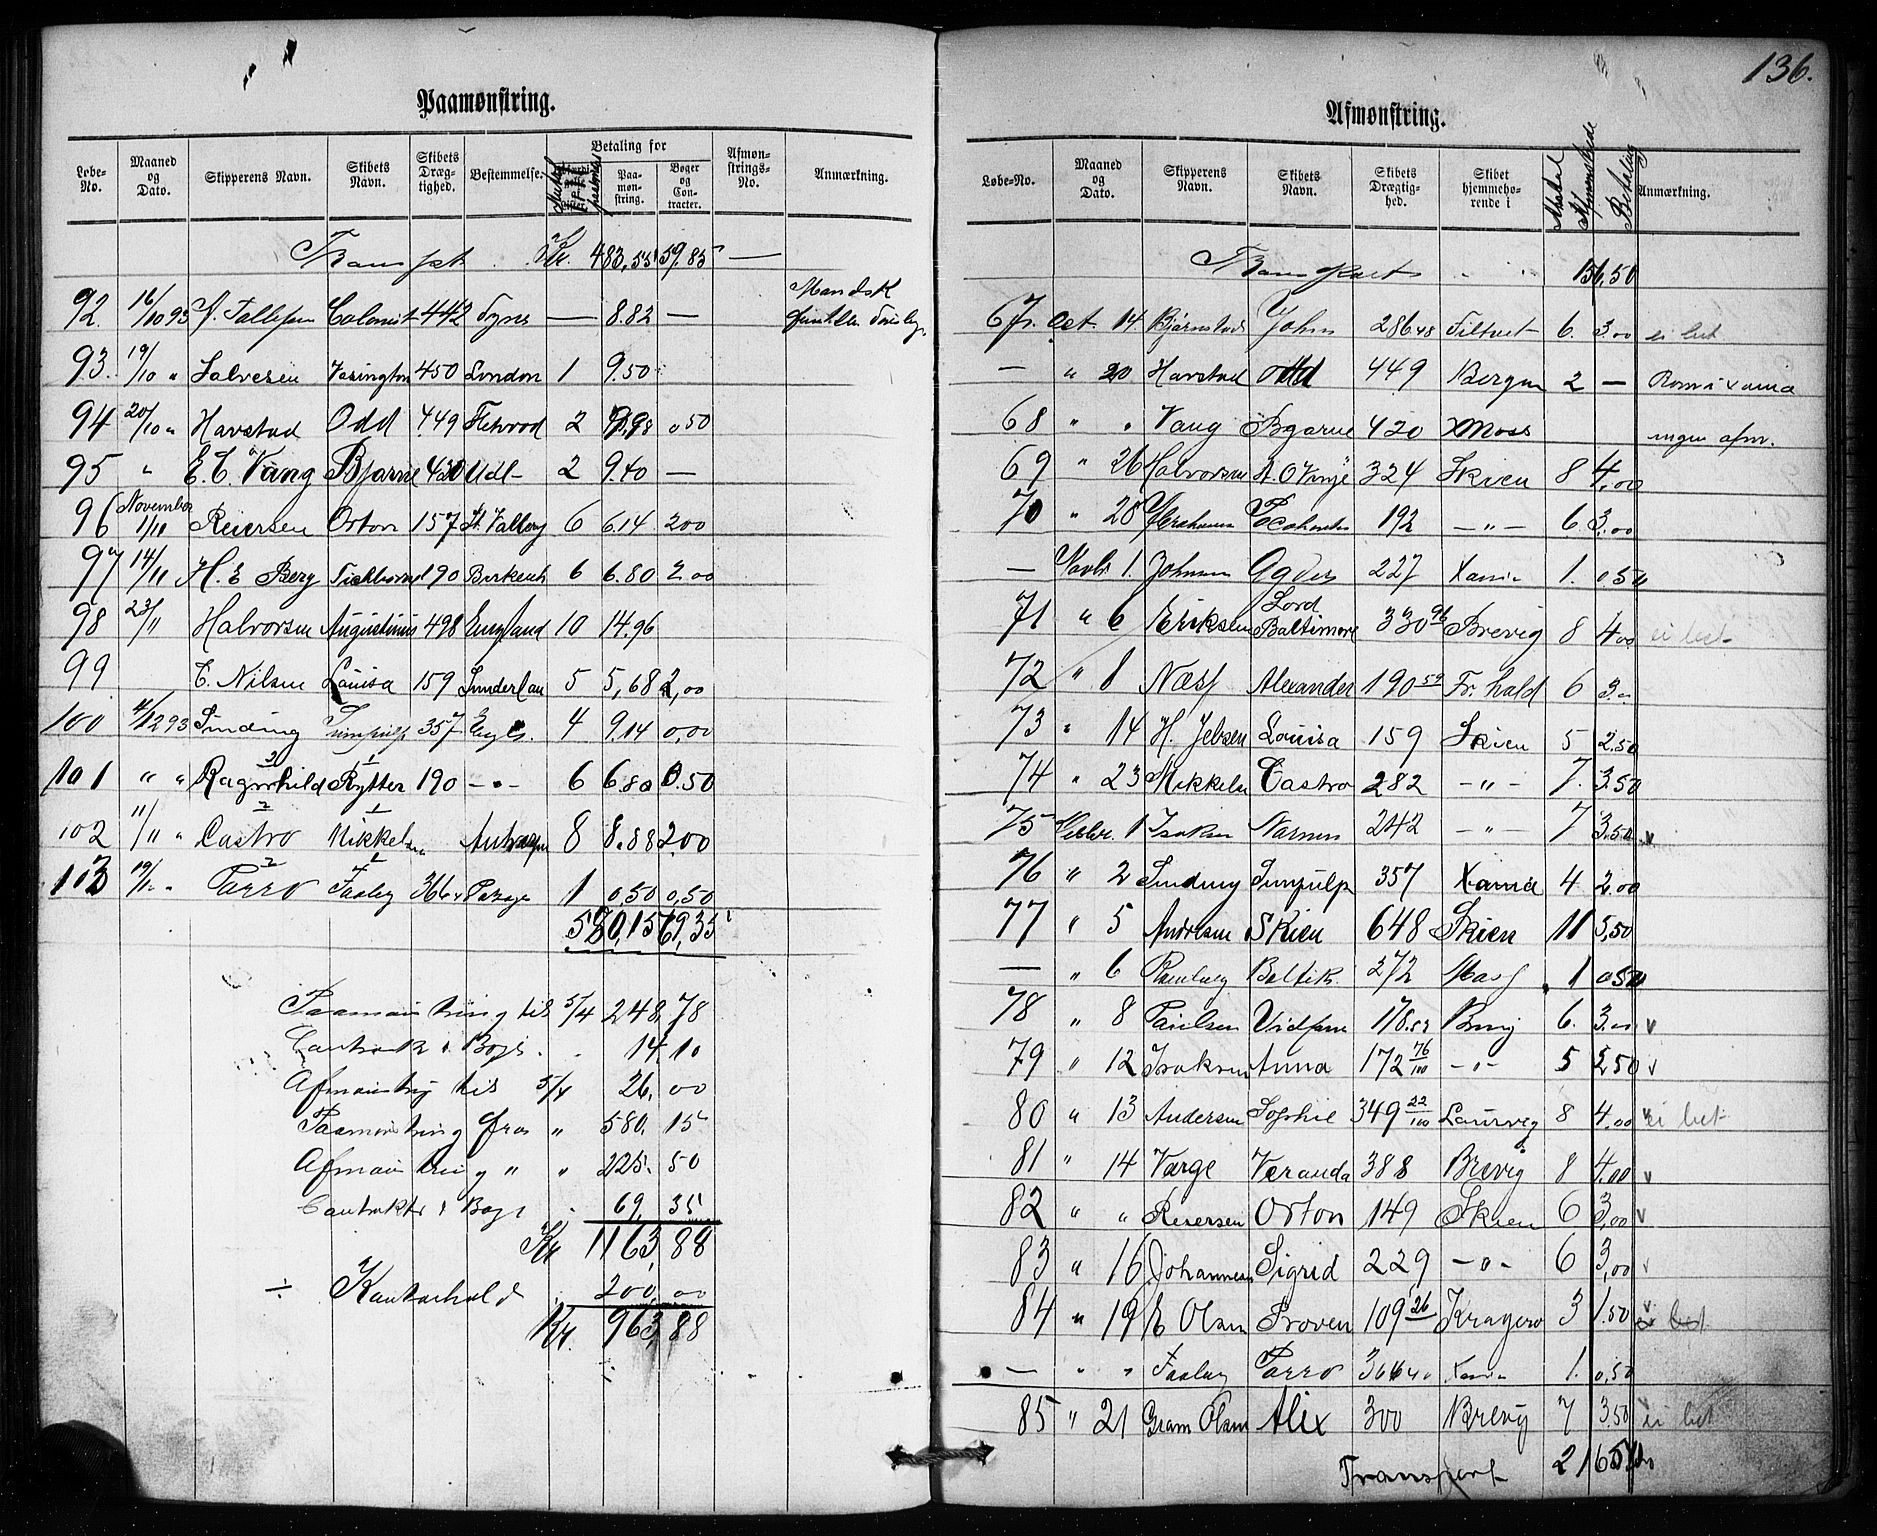 136.
Paamønstring.
Løbe-No. Maaned og Dato. Skipperens Navn. Skibets Navn. Skibets Drægtighed. Bestemmelse. Betaling for Paamønstring. Bøger og Contracter. Afmønstrings-No. Anmærkning.
Transpt. Kr. 483,55 59.85 —
92. 16/10 93 Colonist 442 Tyne — 8.82 — Mandsk
93. 19/10 " Salvesen Vasington 450 London 1 9.50
94 20/10 " Havstad Odd 449 Fletvod 2 9.98 0,50
95 " E. C. Vang Bjarne 420 Udl- 2 9.40 —
96 November 1/11 Reiersen Orton 157 St. Vallery 6 6.14 2,00
97 14/11 H. E Berg 190 Birkenh 6 6.80 2,00
98 23/11 Halvorsen Augustinus 498 England 10 14.96
99 E. Nilsen Louisa 159 Sunderlan 5 5,68 2,00
100 4/12 93 Sinding 357 Engl. 4 9.14 0,00
101 " " Ragnhild Rytter 190 — " — 6 6.80 0.50
102 11/11 " Castro Mikkelsen 8 8.88 2,00
103 19/12 " Parro Faaley 366 1 0,50 0,50
580,15 69,35
Paamønstring til 5/4 248,78
Contrakt & Bøger 14,10
Afmønstring til 5/4 26,00
Paamønstring fra " 580,15
Afmønstring " " 225,50
Contrakter & Bøger 69,35
Kr 1163,88
÷ Kontorhold 200,00
Kr. 963,88
Afmønstring.
Løbe-No. Maaned og Dato. Skipperens Navn. Skibets Navn. Skibets Drægtighed. Skibet hjemmehørende i Antal Afmønstrede Betaling Anmærkning.
Transport 156,50
67. Oct. 14 Bjørnstad John 286 48 Filtvet 6. 3.00 ei bet
— " 20 Havstad Odd 449 Bergen 2 —
68 " " Vang Bjarne 420 Moss ingen afm.
69 " 26 Halvorsen A. O Vinje 324 Skien 8 4,00
70 " 28 Abrahamsen Pocahontas 192 — " — 6 3,00
— Novbr 1. Johnsen Agder 227 Xania 1. 0,50
71 " 6 Eriksen Lord Baltimore 330 96 Brevig 8 4,00 ei bet
72 " 8 Næss Alexander 190 59 Fr. hald 6 3,00
73 " 14 H. Jebsen Louisa 159 Skien 5 2.50
74 " 23 Mikkelse Castro 282 — " — 7. 3.50
75 Decbr. 1 Isaksen Narnen 242 — " — 7 3.50 v
76 " 2 Sinding 357 Xania 4 2,00
77 " 5 Andresen Skien 648 Skien 11 5,50
— " 6 Baltik 272 Moss 1 0,50
78 " 8 Paulsen Vidfarne 178.53 Brevig 6. 3.00 v
79 " 12 Isaksen Anna 172 76/100 — " — 5 2,50 v
80 " 13 Andersen Sophie 349 22/100 Laurvig 8 4.00 v ei bet
81 " 14 Værge Veranda 388 Brevig 8 4.00 v
82 " " Reiersen Orton 149 Skien 6 3,00 v
83 " 16 Johannesen Sigrid 229 — " — 6 3,00 v
84 " 19 E Olsen Proven 109 26 Kragerø 3 1.50 v ei bet
— " " Faaley Parro 366 40 Xania 1. 0,50
85 " 21 Gram Olsen Alix 300 Brevig 7 3.50 ei bet
Transport 216